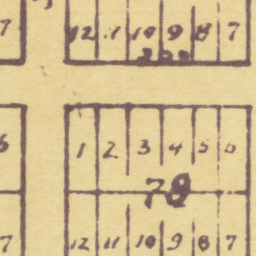 7 12 11 10 9 8 7
6 1 2 3 4 5 6
78
7 12 11 10 9 8 7